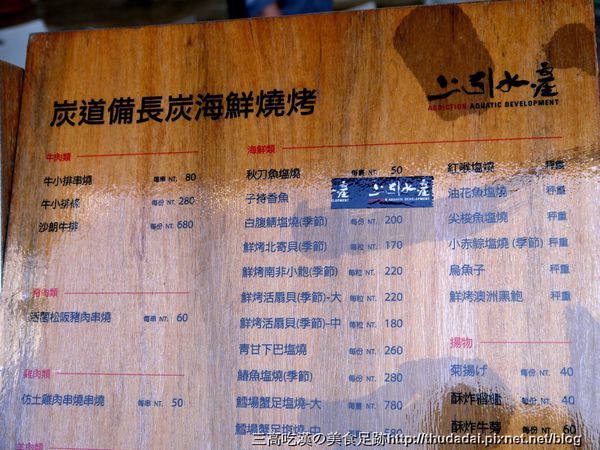 炭道備長炭海鮮燒烤
上引水產
ADDICTION AQUATIC DEVELOPMENT
牛肉類
牛小排串燒 每串 NT. 80
牛小排 每份 NT. 280
沙朗牛排 每份 NT. 680
豬肉類
松阪豬肉串燒 每串 NT. 60
雞肉類
仿土雞肉串燒 每串 NT. 50
海鮮類
秋刀魚塩燒 NT. 50
子持香魚
上引水產
白腹鯖塩燒(季節) 每份 NT. 200
鮮烤北寄貝(季節) 每粒 NT. 170
鮮烤南非小鮑(季節) 每粒 NT. 220
鮮烤活扇貝(季節)-大 每粒 NT. 220
鮮烤活扇貝(季節)-中 每粒 NT. 180
青甘下巴塩燒 每份 NT. 260
鰆魚塩燒(季節) 每份 NT. 280
鱈場蟹足塩燒-大 每份 NT. 780
鱈場蟹足塩燒-中 每份 NT. 580
紅喉塩燒 秤重
油花魚塩燒 秤重
尖梭魚塩燒 秤重
小赤鯮塩燒(季節) 秤重
烏魚子 秤重
鮮烤澳洲黑鮑 秤重
揚物
菊揚げ 每份 NT. 40
酥炸 每份 NT. 40
酥炸牛蒡 每份 NT. 60
三高吃漢の美食足跡http://thudadai.pixnet.net/blog